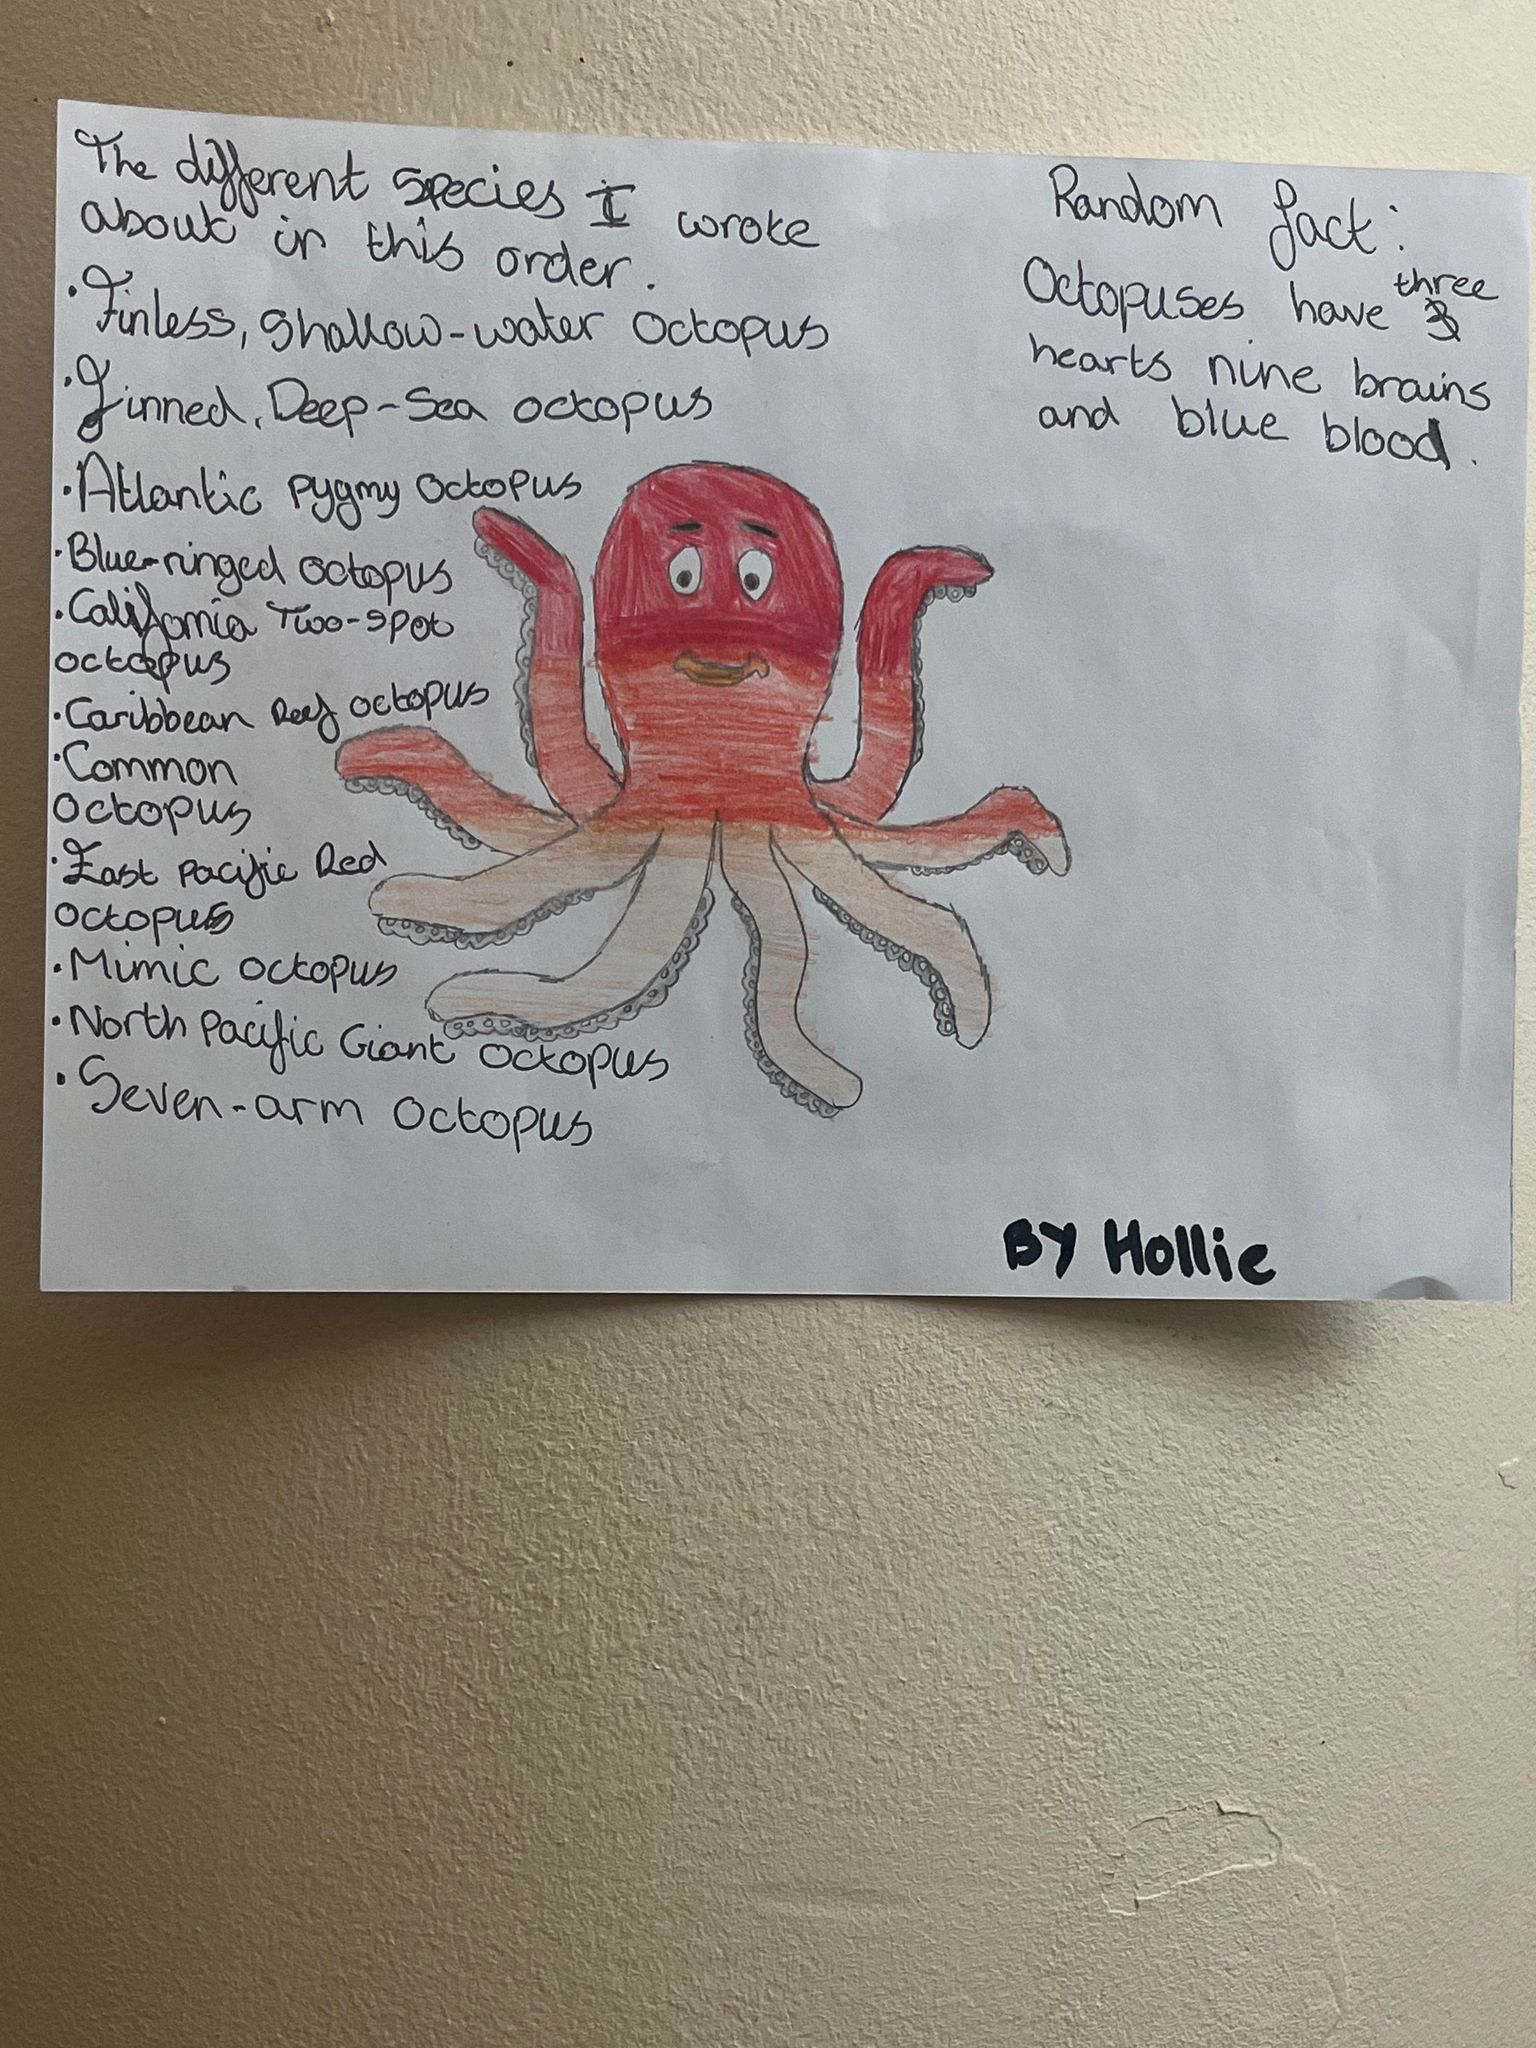 The different species I wrote
about in this order.
• Finless, Shallow-water octopus
• Finned, Deep-Sea octopus
• Atlantic Pygmy octopus
• Blue-ringed octopus
• California Two-Spot
octopus
• Caribbean Reef octopus
• Common
octopus
• East Pacific Red
octopus
• Mimic octopus
• North Pacific Giant octopus
• Seven-arm octopus
Random fact:
Octopuses have three
hearts nine brains
and blue blood.
BY Hollie